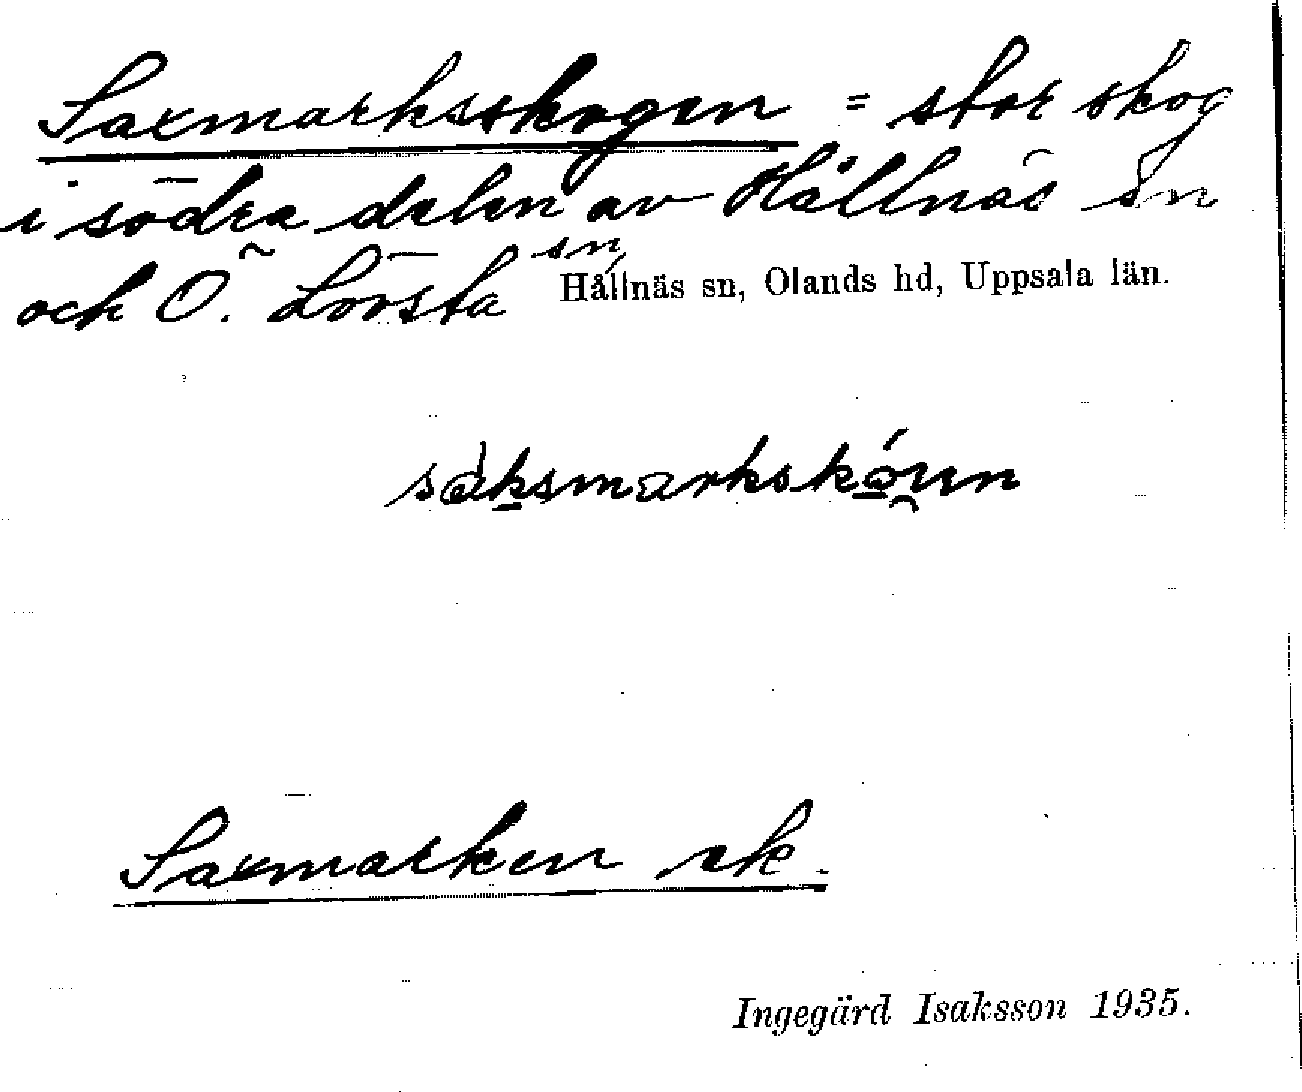 Saxmarksskogen = stor skog
i södra delen av Hållnäs sn
och Ö. Lövsta sn,
Hållnäs sn, Olands hd, Uppsala län.
Saxmarken sk.
Ingegärd Isaksson 1935.